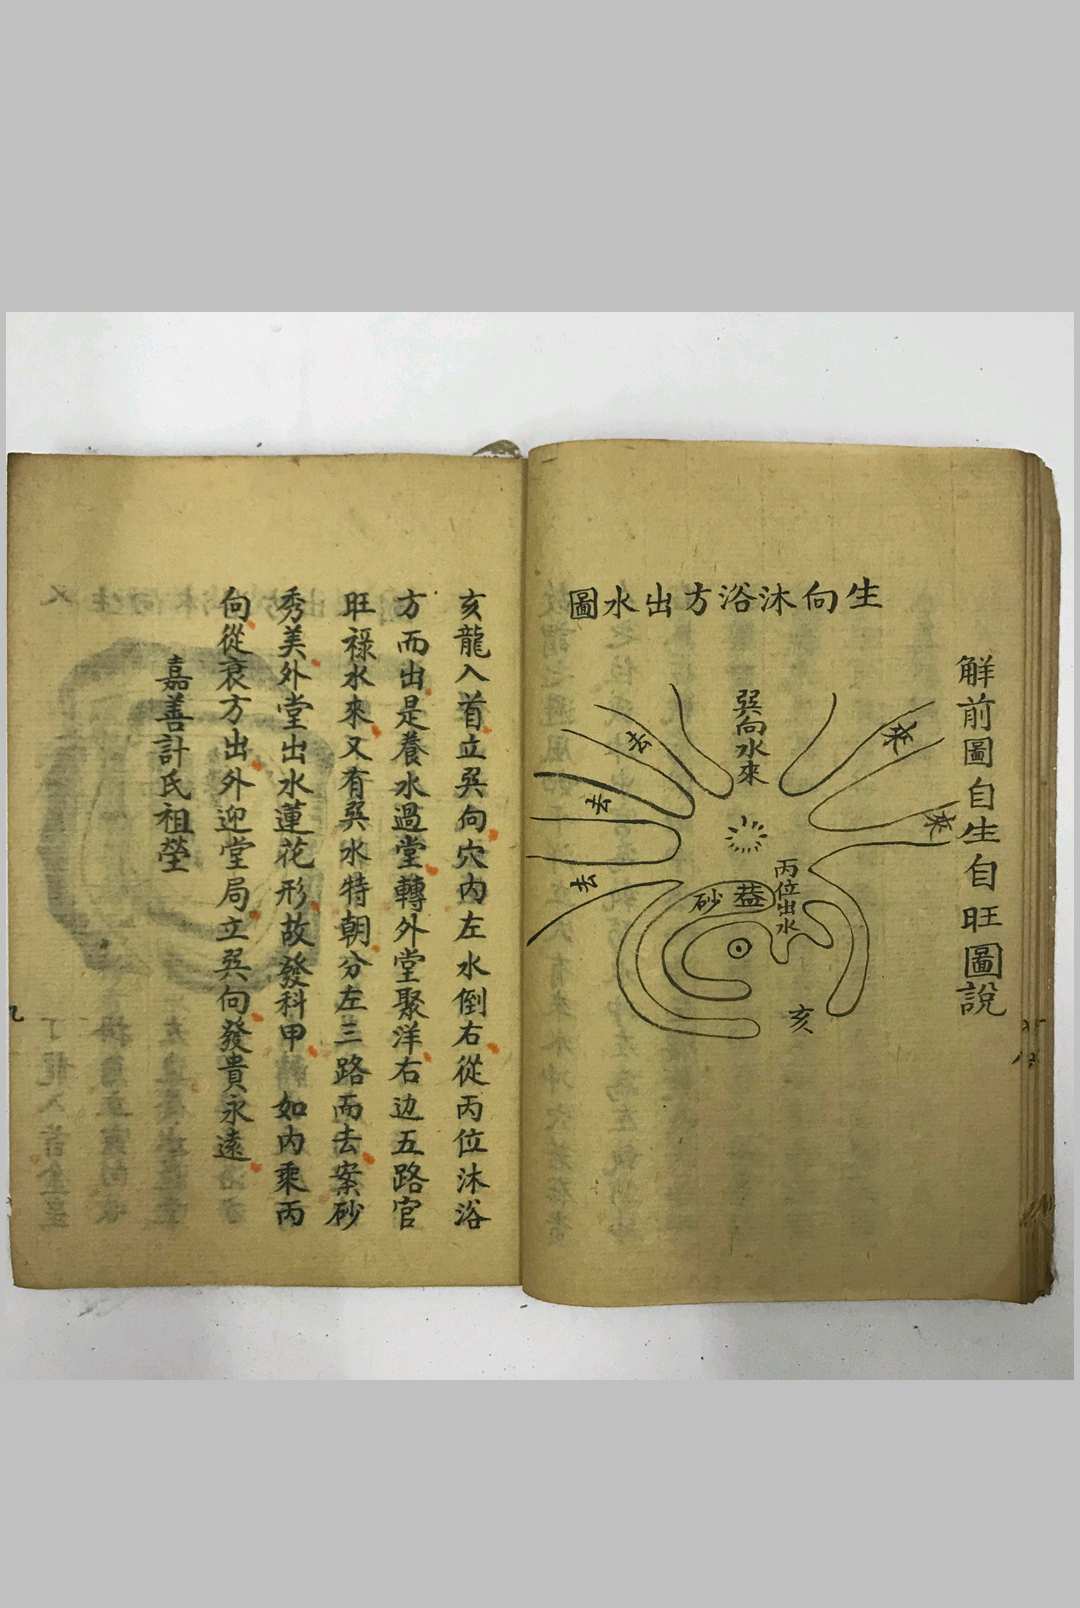 解前圖自生自旺圖說
生向沐浴方出水圖
巽向水來
來
來
去
去
去
丙位出水
砂
亥
亥龍入首立巽向穴內左水倒右從丙位沐浴
方而出是養水過堂轉外堂聚洋右边五路官
旺祿水來又有巽水特朝分左三路而去案砂
秀美外堂出水蓮花形故發科甲 如內乘丙
向從衰方出外迎堂局立巽向發貴永遠
嘉善計氏祖塋